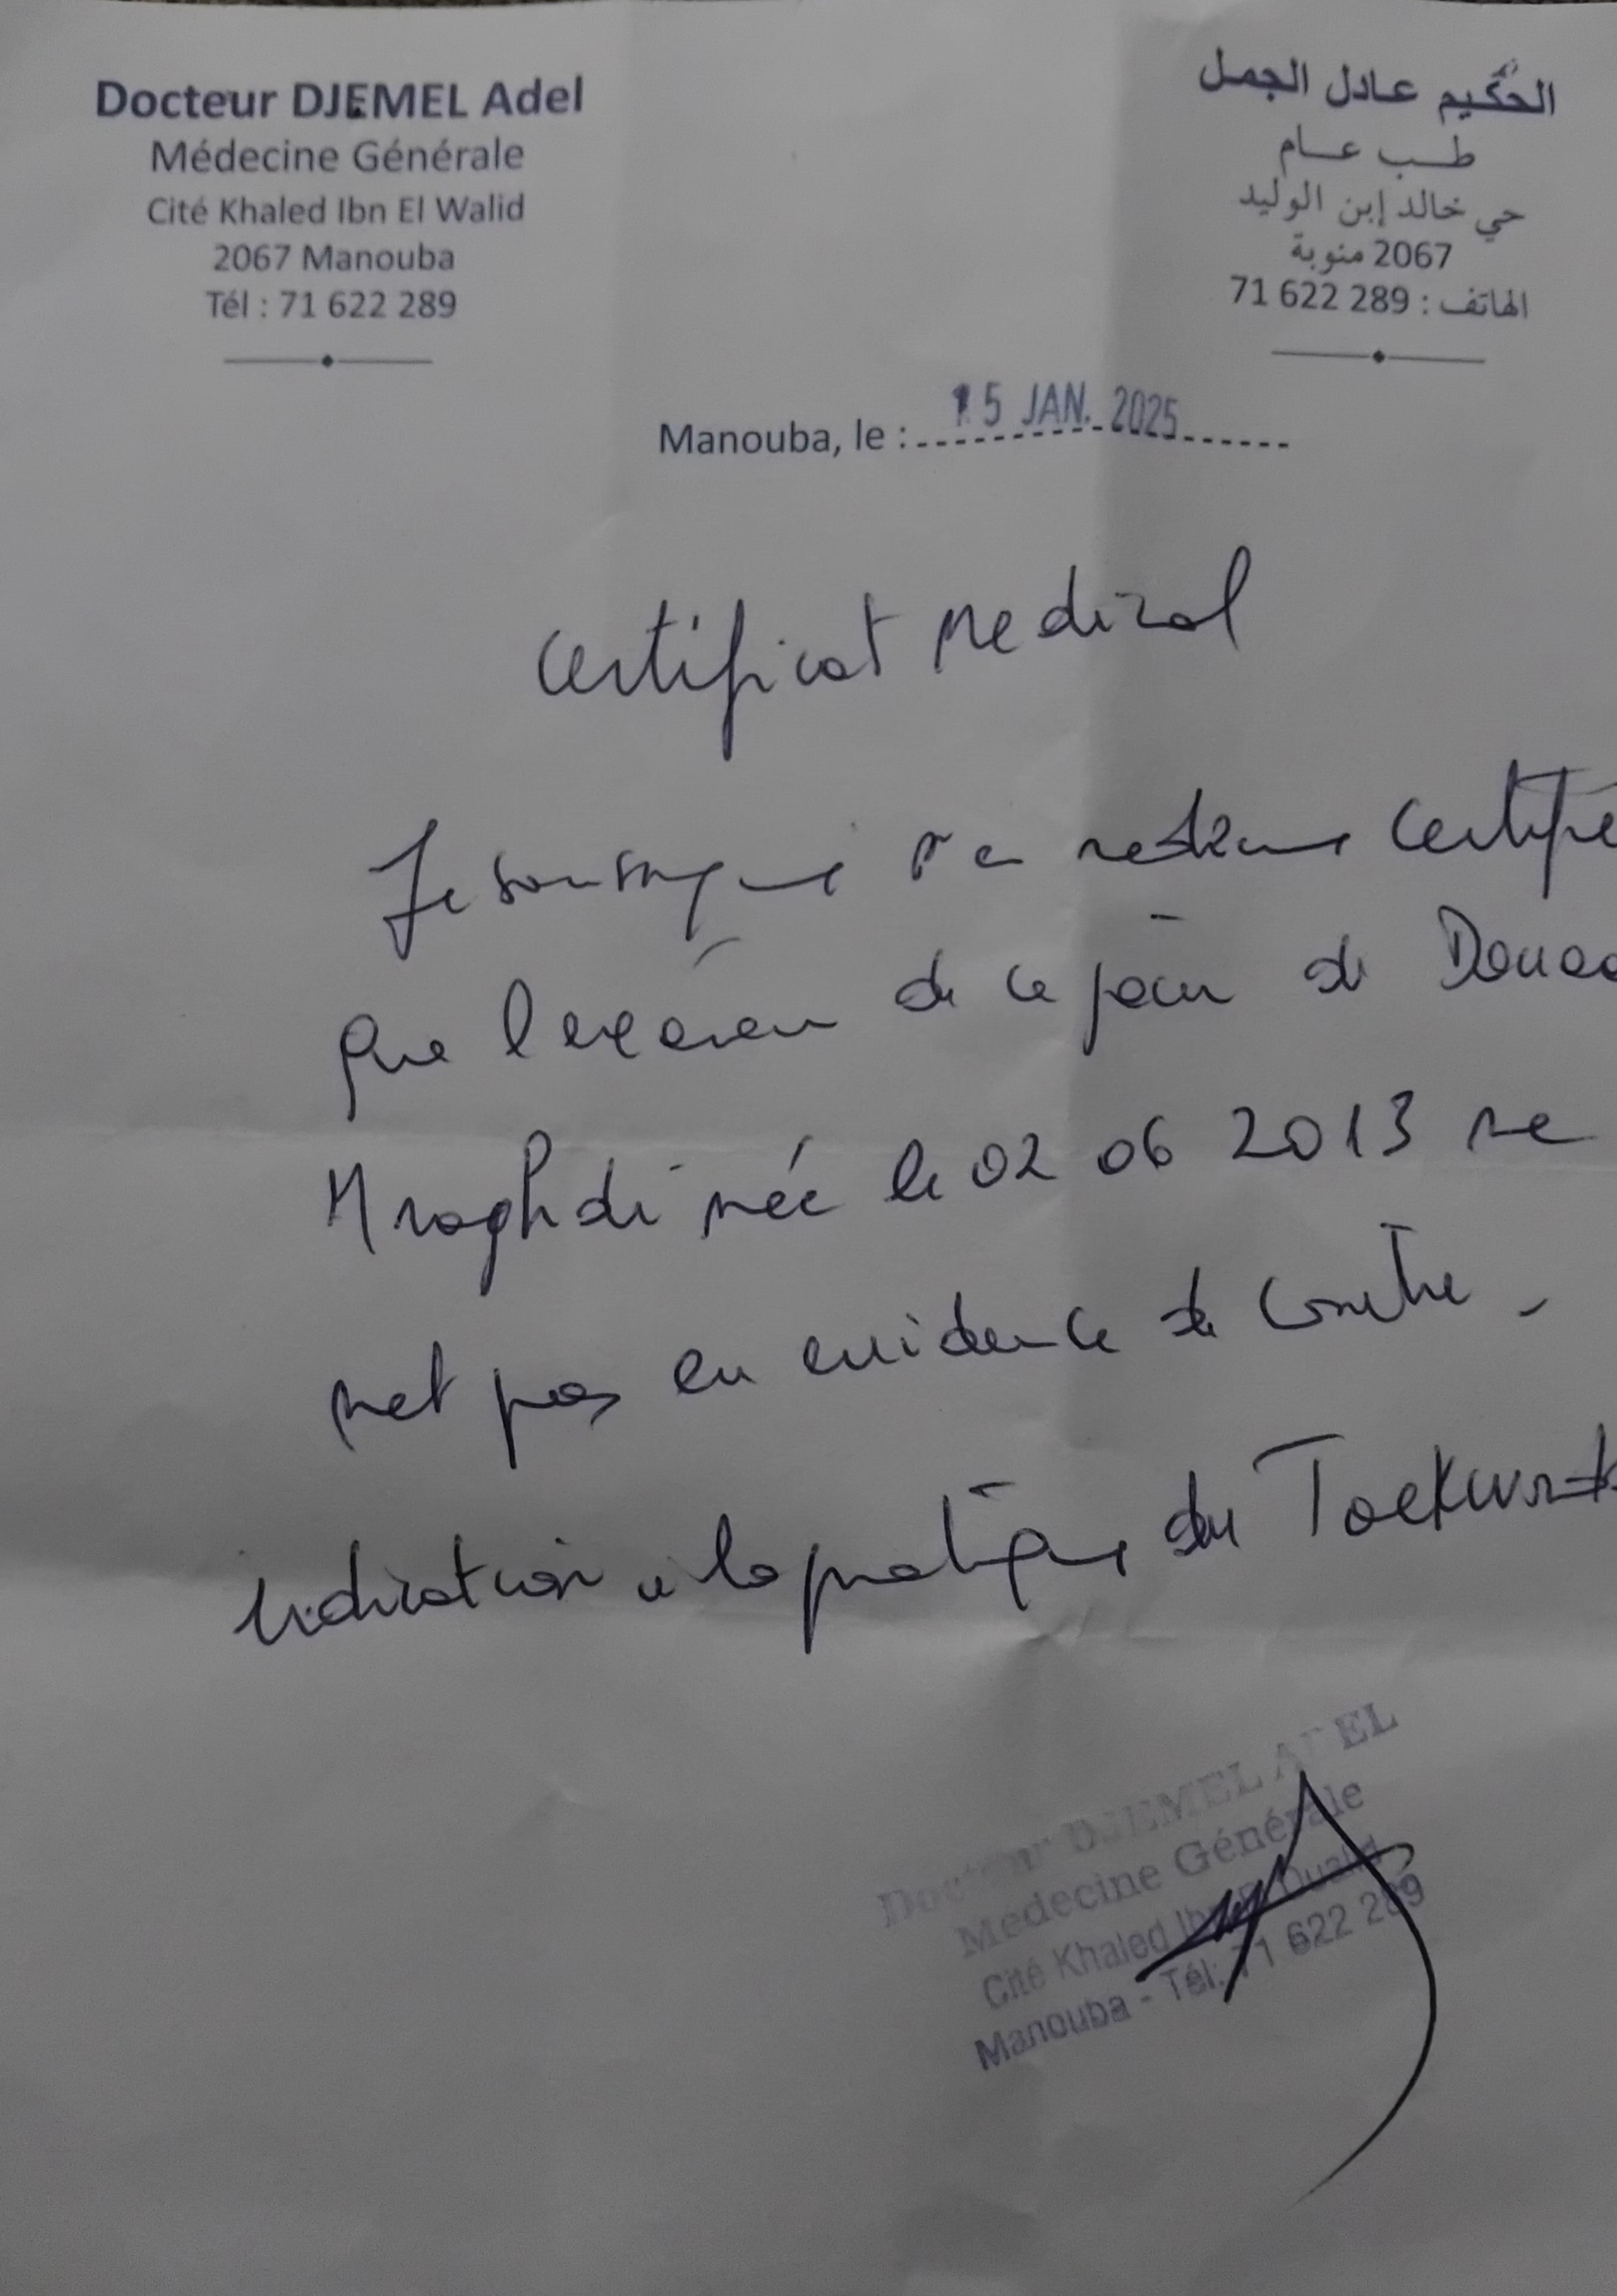 Docteur DJEMEL Adel
Médecine Générale
Cité Khaled Ibn El Walid
2067 Manouba
Tél : 71 622 289
الحكيم عادل الجمل
طب عام
حي خالد إبن الوليد
2067 منوبة
الهاتف : 71 622 289
Manouba, le : 15 JAN. 2025
Certificat Medical
Je soussigné certifie
que l'examen de ce jour de Doua
Mraghdi née le 02 06 2013 ne
met pas en evidence de contre -
indication à la pratique du Taekwond
Docteur DJEMEL ADEL
Medecine Générale
Cité Khaled Ibn Oualid
Manouba - Tél: 71 622 289